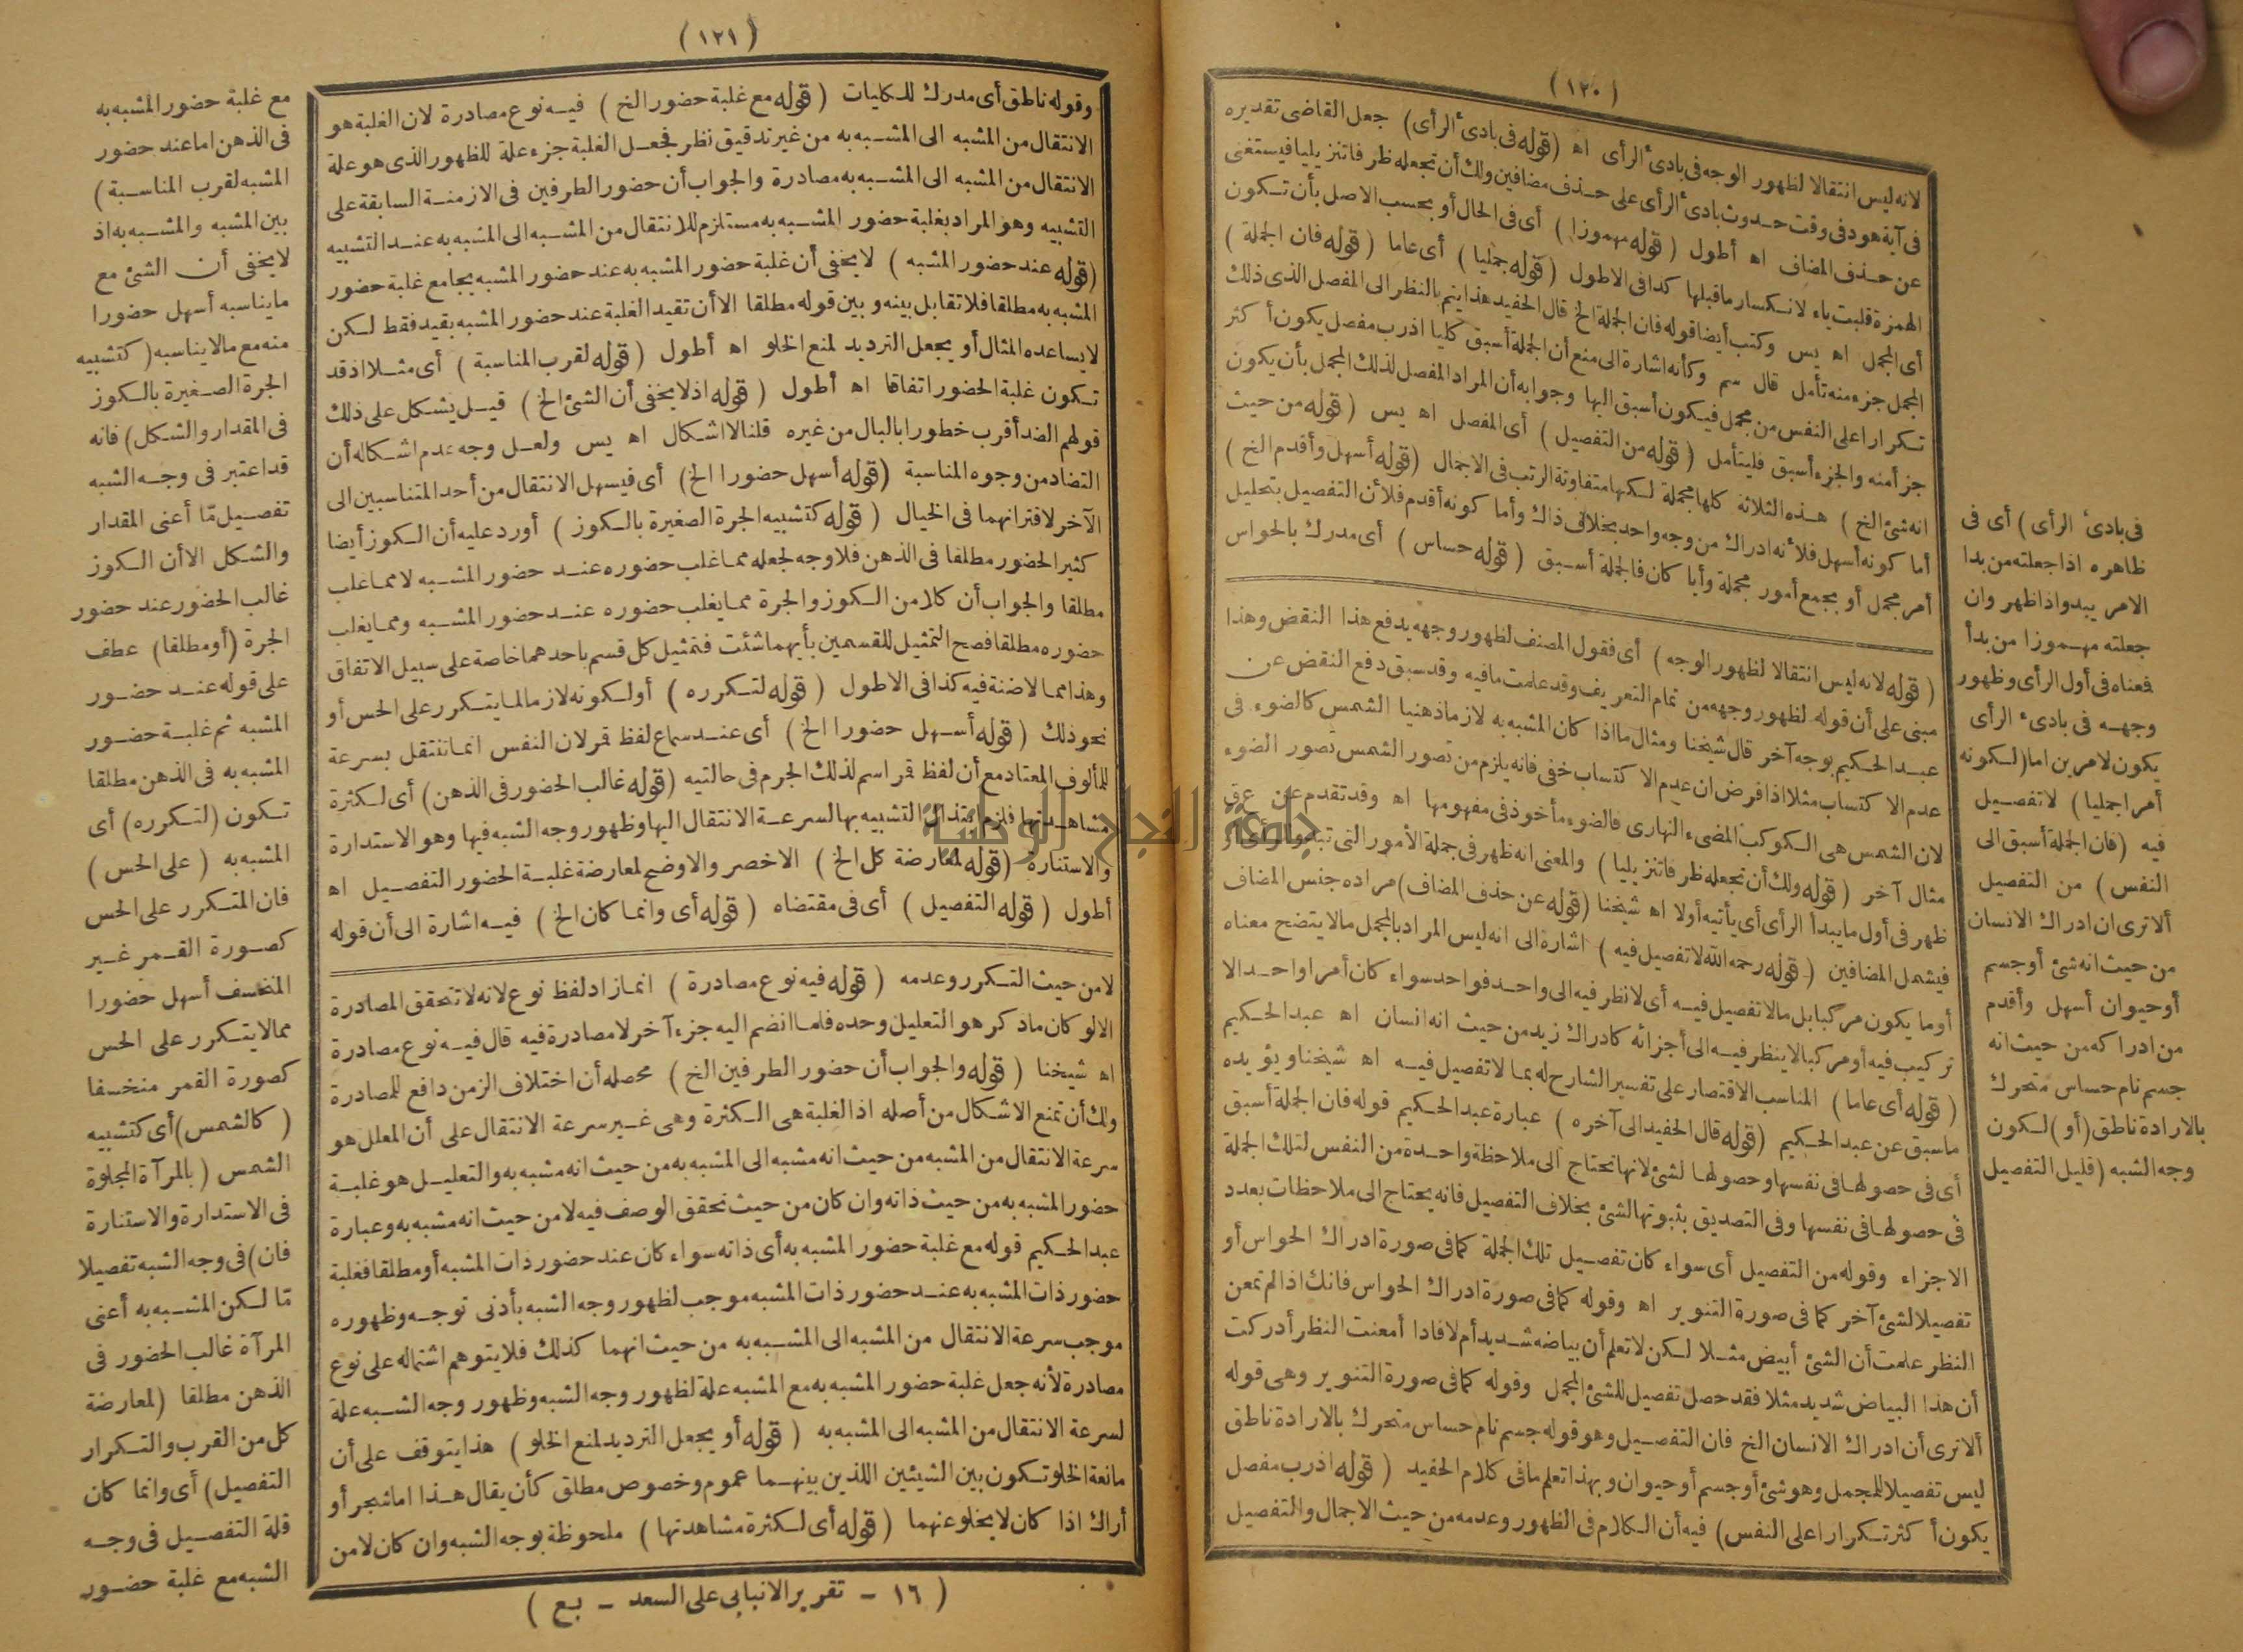 (١٢٠)
لانه ليس انتقالا لظهور الوجه فى بادئ الرأى اه (قوله فى بادئ الرأى) جعل القاضى تقديره
فى آية هود فى وقت حدوث بادئ الرأى على حذف مضافين ولك أن تجعله ظرفا تنزيليا فيستغنى
عن حذف المضاف اه أطول (قوله مهموزا) أى فى الحال أو بحسب الاصل بأن تكون
الهمزة قلبت ياء لانكسار ما قبلها كذا فى الاطول (قوله جمليا) أى عاما (قوله فان الجملة)
أى المجمل اه يس وكتب أيضا قوله فان الجملة الخ قال الحفيد هذا يتم بالنظر الى المفصل الذى ذلك
المجمل جزء منه تأمل قال سم وكأنه اشارة الى منع أن الجملة أسبق كليا اذ رب مفصل يكون أكثر
تكرارا على النفس من مجمل فيكون أسبق اليها وجوابه أن المراد المفصل لذلك المجمل بأن يكون
جزأ منه والجزء أسبق فليتأمل (قوله من التفصيل) أى المفصل اه يس (قوله من حيث
انه شئ الخ) هذه الثلاثة كلها مجملة لكنها متفاوتة الرتب فى الاجمال (قوله أسهل وأقدم الخ)
أما كونه أسهل فلأنه ادراك من وجه واحد بخلاف ذاك وأما كونه أقدم فلأن التفصيل بتحليل
أمر مجمل أو بجمع أمور مجملة وأيا كان فالجملة أسبق (قوله حساس) أى مدرك بالحواس
(قوله لانه ليس انتقالا لظهور الوجه) أى فقول المصنف لظهور وجهه يدفع هذا النقض وهذا
مبنى على أن قوله لظهور وجهه من تمام التعريف وقد علمت ما فيه وقد سبق دفع النقض عن
عبد الحكيم بوجه آخر قال شيخنا ومثال ما اذا كان المشبه به لازما ذهنيا الشمس كالضوء فى
عدم الاكتساب مثلا اذا فرض ان عدم الاكتساب خفى فانه يلزم من تصور الشمس تصور الضوء
لان الشمس هى الكوكب المضىء النهارى فالضوء مأخوذ فى مفهومها اه وقد تقدم عن ع ق
مثال آخر (قوله ولك أن تجعله ظرفا تنزيليا) والمعنى انه ظهر فى جملة الأمور التى تبدو الرأى أو
ظهر فى أول ما يبدأ الرأى أى يأتيه أولا اه شيخنا (قوله عن حذف المضاف) مراده جنس المضاف
فيشمل المضافين (قوله رحمه الله لا تفصيل فيه) اشارة الى انه ليس المراد بالمجمل ما لا يتضح معناه
أو ما يكون مركبا بل ما لا تفصيل فيه أى لا نظر فيه الى واحد فواحد سواء كان أمرا واحدا لا
تركيب فيه أو مركبا لا ينظر فيه الى أجزائه كادراك زيد من حيث انه انسان اه عبد الحكيم
(قوله أى عاما) المناسب الاقتصار على تفسير الشارح له بما لا تفصيل فيه اه شيخنا ويؤيده
ما سبق عن عبد الحكيم (قوله قال الحفيد الى آخره) عبارة عبد الحكيم قوله فان الجملة أسبق
أى فى حصولها فى نفسها وحصولها لشئ لانها تحتاج الى ملاحظة واحدة من النفس لتلك الجملة
فى حصولها فى نفسها وفى التصديق بثبوتها لشئ بخلاف التفصيل فانه يحتاج الى ملاحظات بعدد
الاجزاء وقوله من التفصيل أى سواء كان تفصيل تلك الجملة كما فى صورة ادراك الحواس أو
تفصيلا لشئ آخر كما فى صورة التنوير اه وقوله كما فى صورة ادراك الحواس فانك اذا لم تمعن
النظر علمت أن الشئ أبيض مثلا لكن لا تعلم أن بياضه شديد أم لا فاذا أمعنت النظر أدركت
أن هذا البياض شديد مثلا فقد حصل تفصيل للشئ المجمل وقوله كما فى صورة التنوير وهى قوله
ألا ترى أن ادراك الانسان الخ فان التفصيل وهو قوله جسم نام حساس متحرك بالارادة ناطق
ليس تفصيلا للمجمل وهو شئ أو جسم أو حيوان وبهذا تعلم ما فى كلام الحفيد (قوله اذ رب مفصل
يكون أكثر تكرارا على النفس) فيه أن الكلام فى الظهور وعدمه من حيث الاجمال والتفصيل
فى بادئ الرأى) أى فى
ظاهره اذا جعلته من بدا
الامر يبدو اذا ظهر وان
جعلته مهموزا من بدأ
فمعناه فى أول الرأى وظهور
وجهه فى بادئ الرأى
يكون لامرين اما (لكونه
أمرا جمليا) لا تفصيل
فيه (فان الجملة أسبق الى
النفس) من التفصيل
ألا ترى ان ادراك الانسان
من حيث انه شئ أو جسم
أو حيوان أسهل وأقدم
من ادراكه من حيث انه
جسم نام حساس متحرك
بالارادة ناطق (أو) لكون
وجه الشبه (قليل التفصيل
(١٢١)
وقوله ناطق أى مدرك للكليات (قوله مع غلبة حضور الخ) فيه نوع مصادرة لان الغلبة هو
الانتقال من المشبه الى المشبه به من غير تدقيق نظر فجعل الغلبة جزء علة للظهور الذى هو علة
الانتقال من المشبه الى المشبه به مصادرة والجواب أن حضور الطرفين فى الازمنة السابقة على
التشبيه وهو المراد بغلبة حضور المشبه به مستلزم للانتقال من المشبه الى المشبه به عند التشبيه
(قوله عند حضور المشبه) لا يخفى أن غلبة حضور المشبه به عند حضور المشبه يجامع غلبة حضور
المشبه به مطلقا فلا تقابل بينه وبين قوله مطلقا الا أن تقيد الغلبة عند حضور المشبه بقيد فقط لكن
لا يساعده المثال أو يجعل الترديد لمنع الخلو اه أطول (قوله لقرب المناسبة) أى مثلا اذ قد
تكون غلبة الحضور اتفاقا اه أطول (قوله اذ لا يخفى أن الشئ الخ) قيل يشكل على ذلك
قولهم الضد أقرب خطورا بالبال من غيره قلنا لا اشكال اه يس ولعل وجه عدم اشكاله أن
التضاد من وجوه المناسبة (قوله أسهل حضورا الخ) أى فيسهل الانتقال من أحد المتناسبين الى
الآخر لاقترانهما فى الخيال (قوله كتشبيه الجرة الصغيرة بالكوز) أورد عليه أن الكوز أيضا
كثير الحضور مطلقا فى الذهن فلا وجه لجعله مما غلب حضوره عند حضور المشبه لا مما غلب
مطلقا والجواب أن كلا من الكوز والجرة مما يغلب حضوره عند حضور المشبه ومما يغلب
حضوره مطلقا فصح التمثيل للقسمين بأيهما شئت فتمثيل كل قسم باحدهما خاصة على سبيل الاتفاق
وهذا مما لا ضنة فيه كذا فى الاطول (قوله لتكرره) أو لكونه لازما لما يتكرر على الحس أو
نحو ذلك (قوله أسهل حضورا الخ) أى عند سماع لفظ قمر لان النفس انما تنتقل بسرعة
للمألوف المعتاد مع أن لفظ قمر اسم لذلك الجرم فى حالتيه (قوله غالب الحضور فى الذهن) أى لكثرة
مشاهدتها فلزم ابتذال التشبيه بها لسرعة الانتقال اليها وظهور وجه الشبه فيها وهو الاستدارة
والاستنارة (قوله لمعارضة كل الخ) الاخصر والاوضح لمعارضة غلبة الحضور التفصيل اه
أطول (قوله التفصيل) أى فى مقتضاه (قوله أى وانما كان الخ) فيه اشارة الى أن قوله
لا من حيث التكرر وعدمه (قوله فيه نوع مصادرة) انما زاد لفظ نوع لانه لا تتحقق المصادرة
الا لو كان ما ذكر هو التعليل وحده فلما انضم اليه جزء آخر لا مصادرة فيه قال فيه نوع مصادرة
اه شيخنا (قوله والجواب أن حضور الطرفين الخ) محصله أن اختلاف الزمن دافع للمصادرة
ولك أن تمنع الاشكال من أصله اذ الغلبة هى الكثرة وهى غير سرعة الانتقال على أن المعلل هو
سرعة الانتقال من المشبه من حيث انه مشبه الى المشبه به من حيث انه مشبه به والتعليل هو غلبة
حضور المشبه به من حيث ذاته وان كان من حيث تحقق الوصف فيه لا من حيث انه مشبه به وعبارة
عبد الحكيم قوله مع غلبة حضور المشبه به أى ذاته سواء كان عند حضور ذات المشبه أو مطلقا فغلبة
حضور ذات المشبه به عند حضور ذات المشبه موجب لظهور وجه الشبه بأدنى توجه وظهوره
موجب سرعة الانتقال من المشبه الى المشبه به من حيث انهما كذلك فلا يتوهم اشتماله على نوع
مصادرة لأنه جعل غلبة حضور المشبه به مع المشبه علة لظهور وجه الشبه وظهور وجه الشبه علة
لسرعة الانتقال من المشبه الى المشبه به (قوله أو يجعل الترديد لمنع الخلو) هذا يتوقف على أن
مانعة الخلو تكون بين الشيئين اللذين بينهما عموم وخصوص مطلق كأن يقال هذا اما شجر أو
أراك اذا كان لا يخلو عنهما (قوله أى لكثرة مشاهدتها) ملحوظة بوجه الشبه وان كان لا من
مع غلبة حضور المشبه به
فى الذهن اما عند حضور
المشبه لقرب المناسبة)
بين المشبه والمشبه به اذ
لا يخفى أن الشئ مع
ما يناسبه أسهل حضورا
منه مع ما لا يناسبه (كتشبيه
الجرة الصغيرة بالكوز
فى المقدار والشكل) فانه
قد اعتبر فى وجه الشبه
تفصيل مّا أعنى المقدار
والشكل الا أن الكوز
غالب الحضور عند حضور
الجرة (أو مطلقا) عطف
على قوله عند حضور
المشبه ثم غلبة حضور
المشبه به فى الذهن مطلقا
تكون (لتكرره) أى
المشبه به (على الحس)
فان المتكرر على الحس
كصورة القمر غير
المنخسف أسهل حضورا
مما لا يتكرر على الحس
كصورة القمر منخسفا
(كالشمس) أى كتشبيه
الشمس (بالمرآة المجلوة
فى الاستدارة والاستنارة
فان) فى وجه الشبه تفصيلا
مّا لكن المشبه به أعنى
المرآة غالب الحضور فى
الذهن مطلقا (لمعارضة
كل من القرب والتكرار
التفصيل) أى وانما كان
قلة التفصيل فى وجه
الشبه مع غلبة حضور
(١٦ - تقرير الانبابى على السعد - بع)
جامعة النجاح الوطنية